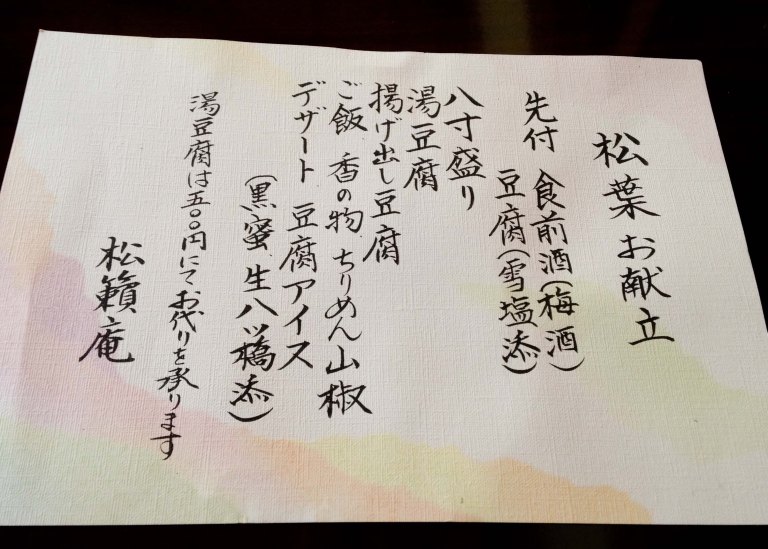 松葉お献立
先付 食前酒(梅酒)
豆腐(雪塩添)
八寸盛り
湯豆腐
揚げ出し豆腐
ご飯 香の物 ちりめん山椒
デザート 豆腐アイス
(黒蜜 生八ッ橋添)
湯豆腐は五〇〇円にてお代りを承ります
松籟庵